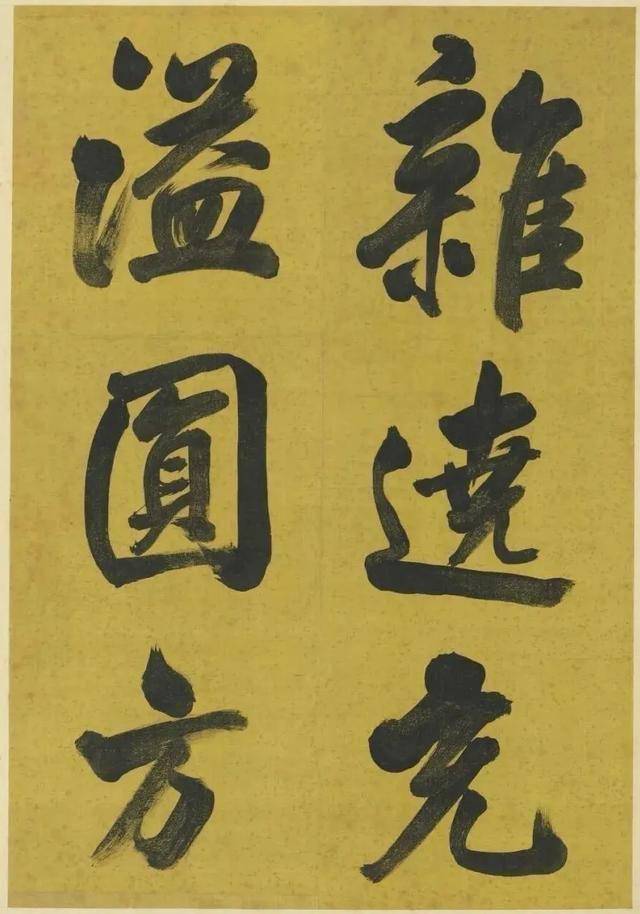 雜遶充
溢圓方